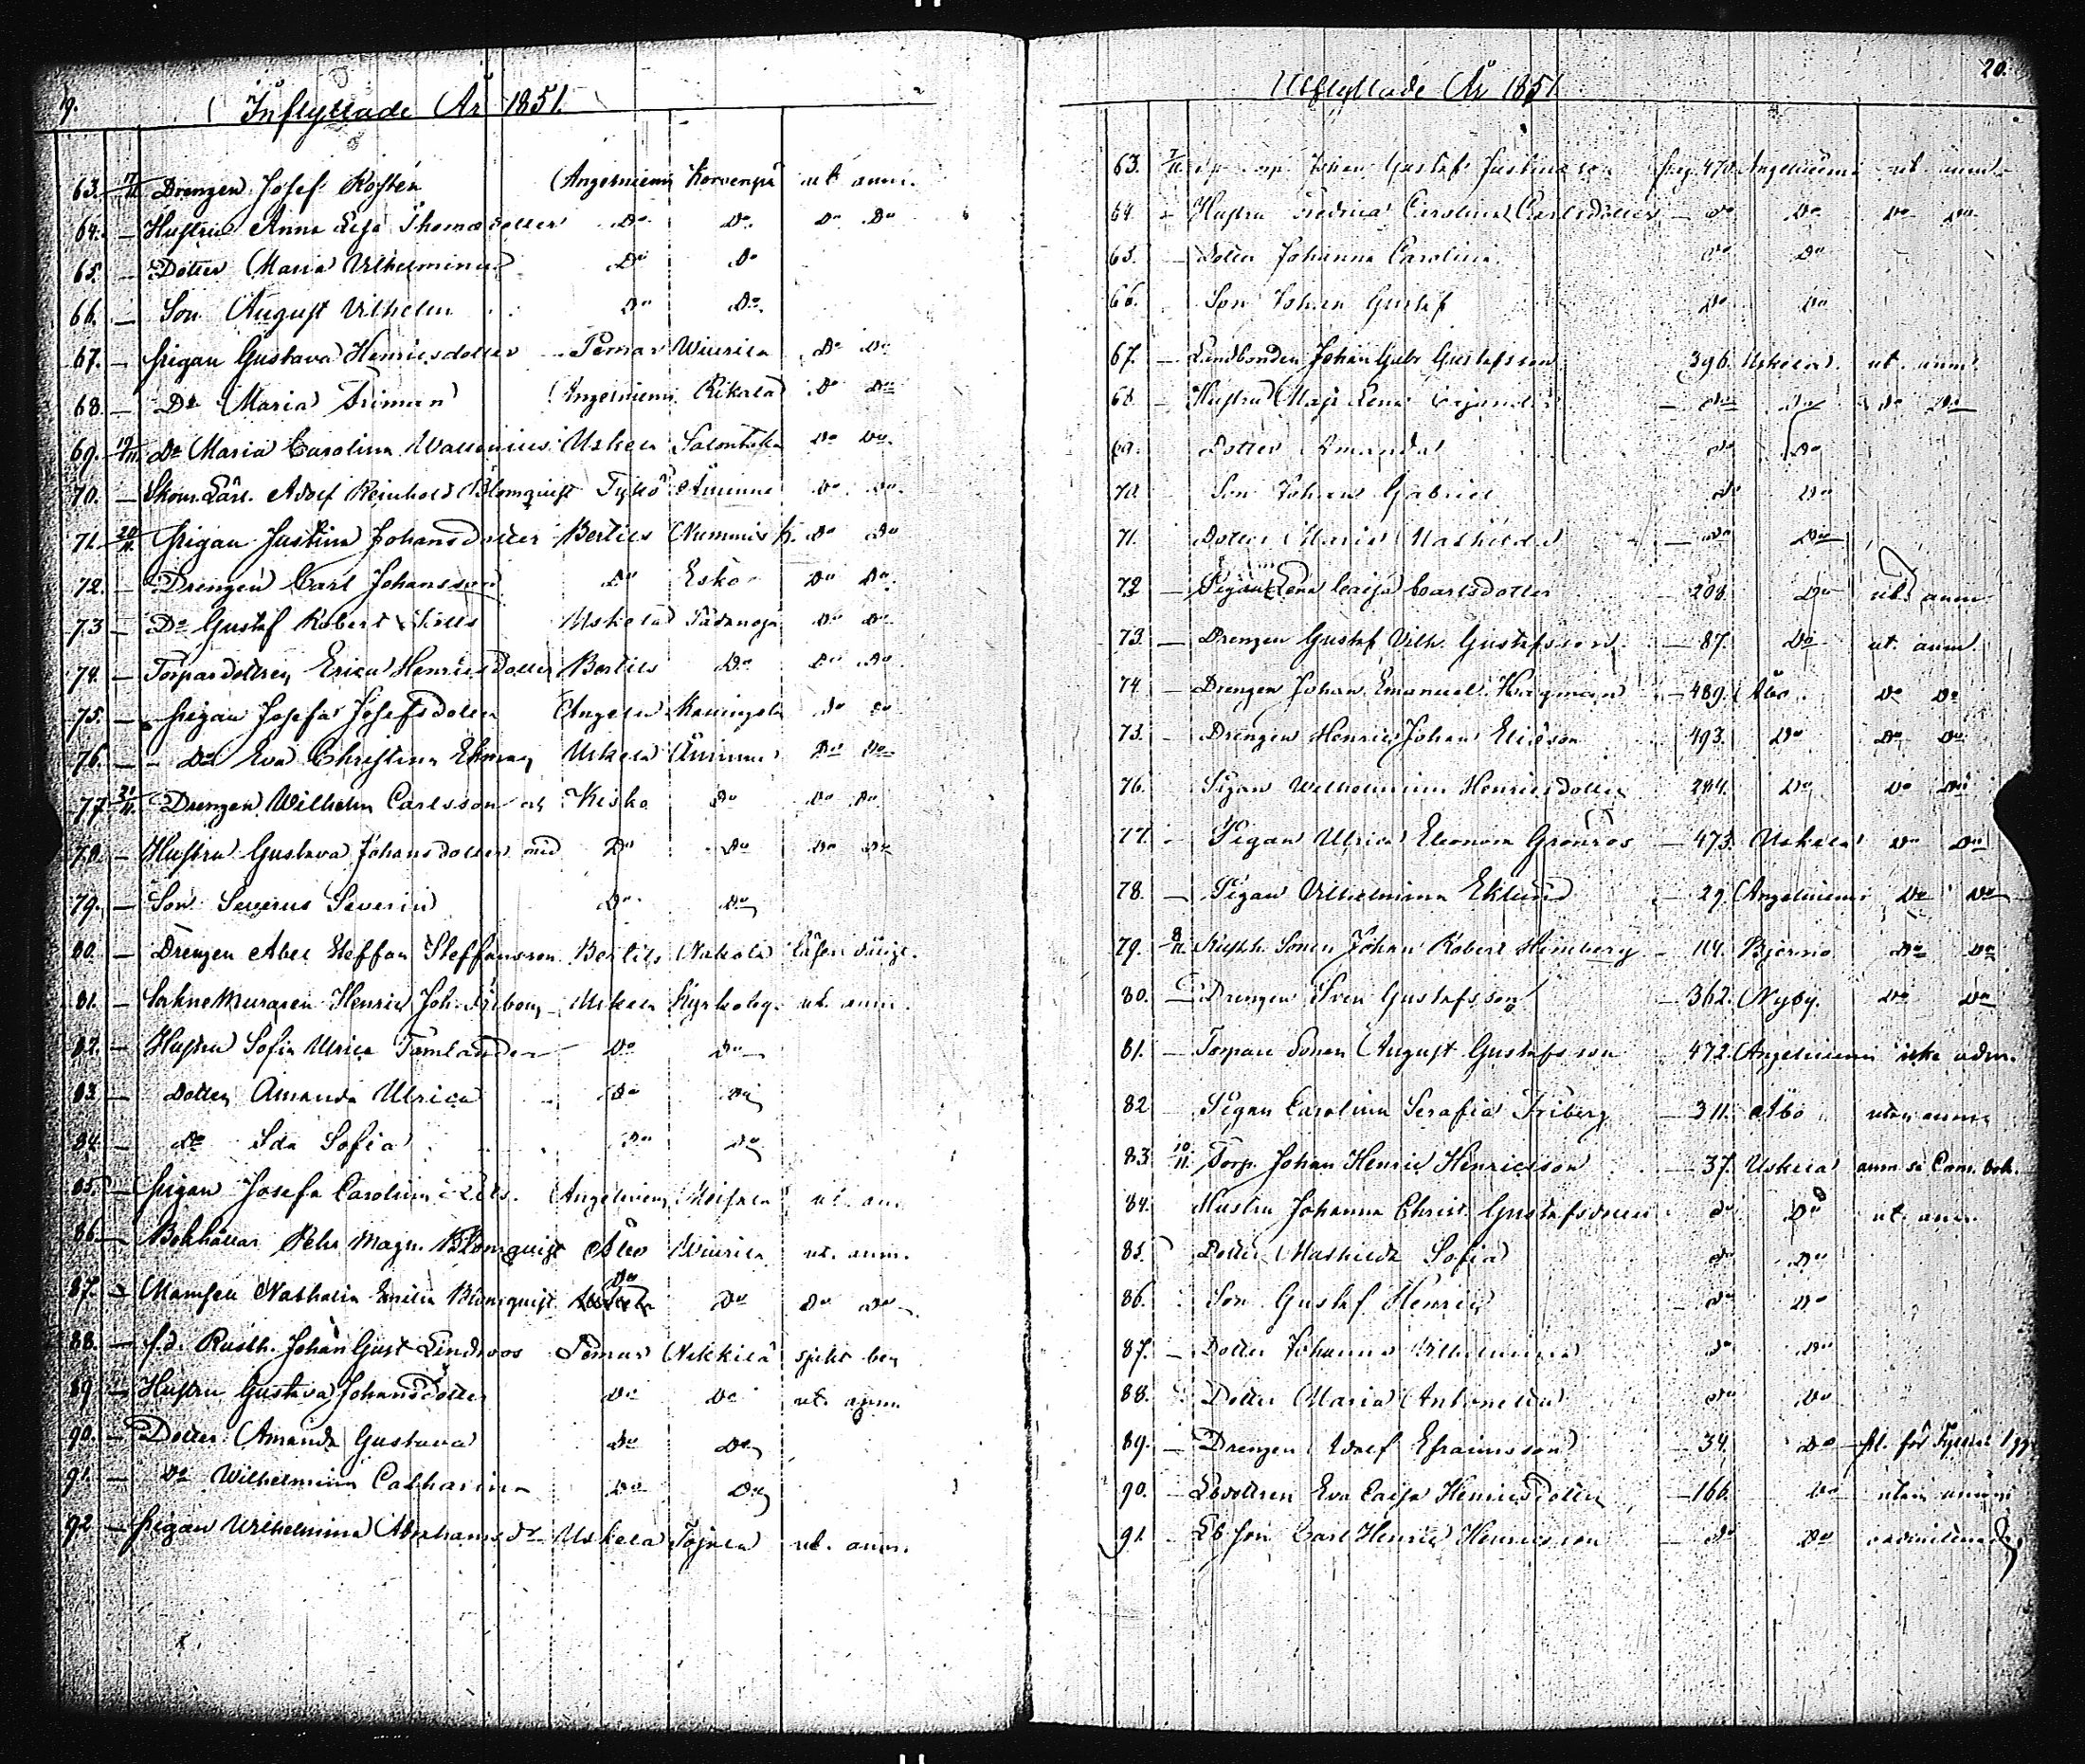 19.
Inflyttade År 1851.
63. 7/11 Drengen Josef Rosten Angelniemi Korvenpä ut anm.
64. — Hustru Anna Lisa Thomasdotter Do Do Do Do
65. — Dotter Maria Vilhelmina Do Do
66. — Son August Vilhelm Do Do
67. — Pigan Gustava Henricsdotter Pemar Wiurila Do Do
68. — Do Maria Friman Angelniemi Rikala Do Do
69. 19/11 Do Maria Carolina Wallenius Uskela Salontaka Do Do
70. — Skom. Lärl. Adolf Reinhold Blomquist Tykö Åminne Do Do
71. 20/11 Pigan Justina Johansdotter Bertils Nummis k. Do Do
72. — Drengen Carl Johansson Do Esko Do Do
73 — Do Gustaf Robert Uskela Do Do
74. — Torpardottren Erica Henricsdotter Bertils Do Do Do
75. — Pigan Josefa Josefsdotter Angeln. Do Do
76. — Do Eva Christina Ekman Uskela Åminne Do Do
77 21/11 Drengen Wilhelm Carlsson och Kisko Do Do Do
78. — Hustru Gustava Johansdotter med Do Do Do Do
79. — Son Severus Severin Do Do
80. — Drengen Abel Steffan Steffansson Bertils Nakola
81. — Henric Joh. Friberg Uskela Kyrkoby. ut. anm.
82. — Hustru Sofia Ulrica Tamlander Do Do
83. — Dotter Amanda Ulrica Do Do
84. — Do Ida Sofia Do Do
85. — Pigan Josefa Carolina Angelniemi ut. an.
86. — Bokhållar Pehr Magn. Blomquist Åbo Wiurila ut. anm.
87. — Mamsell Nathalia Emilia Blomquist Do Do Do Do
88. — f.d. Rusth. Johan Gust Lindroos Pemar Nikkilä
89 — Hustru Gustava Johansdotter Do Do ut. anm.
90. — Dotter Amanda Gustava Do Do
91. — Do Wilhelmina Catharina Do Do
92 — Pigan Wilhelmina Abrahamsdr Uskela ut. anm.
20.
Utflyttade År 1851
63. 7/11 Johan Gustaf pag. 470 Angelniemi ut. anm.
64. — Hustru Fredrica Carolina Carlsdotter — do Do Do Do
65. — Dotter Johanna Carolina do Do
66. Son Johan Gustaf Do Do
67. — Landbonden Johan Gabr. Gustafsson 396. Uskela ut. anm.
68. — Hustru Maja Lena — Do Do Do Do
69. Dotter Amanda do Do
70. Son Johan Gabriel do Do
71. Dotter Maria Mathilda — do Do
72 — Pigan Lena Caisa Carlsdotter — 208. Do ut. anm.
73. — Drengen Gustaf Vilh. Gustafsson — 87. Do ut. anm.
74 — Drengen Johan Emanuel Hagman — 489. Åbo Do Do
75. — Drengen Henric Johan Ericsson 493. Do Do Do
76. Pigan Wilhelmina Henricsdotter 244. Do Do Do
77. — Pigan Ulrica Eleonora Grönroos — 473. Uskela Do Do
78. — Pigan Vilhelmina Eklund — 29. Angelniemi Do Do
79. 8/11 Rusth. Sonen Johan Robert Heimberg — 114. Bjerno Do Do
80. — Drengen Sven Gustafsson — 362. Nyby. Do Do
81. — Torpare Sonen August Gustafsson — 472. Angelniemi icke adm.
82 Pigan Carolina Serafia Friberg — 311. Åbo utan anm.
83. 10/11 Torp. Johan Henric Henricsson — 37. Uskela anm. se Com. bok.
84. Hustru Johanna Christ. Gustafsdotter do Do ut. anm.
85. Dotter Mathilda Sofia do Do
86. Son Gustaf Henric — do Do
87. — Dotter Johanna Vilhelmina do Do
88. Dotter Maria Antonetta do Do
89. — Drengen Adolf Efraimsson — 34. Do
90. — Lbdottren Eva Caisa Henricsdotter — 166. Do utan anm.
91. Lb son Carl Henric Henricsson — do Do